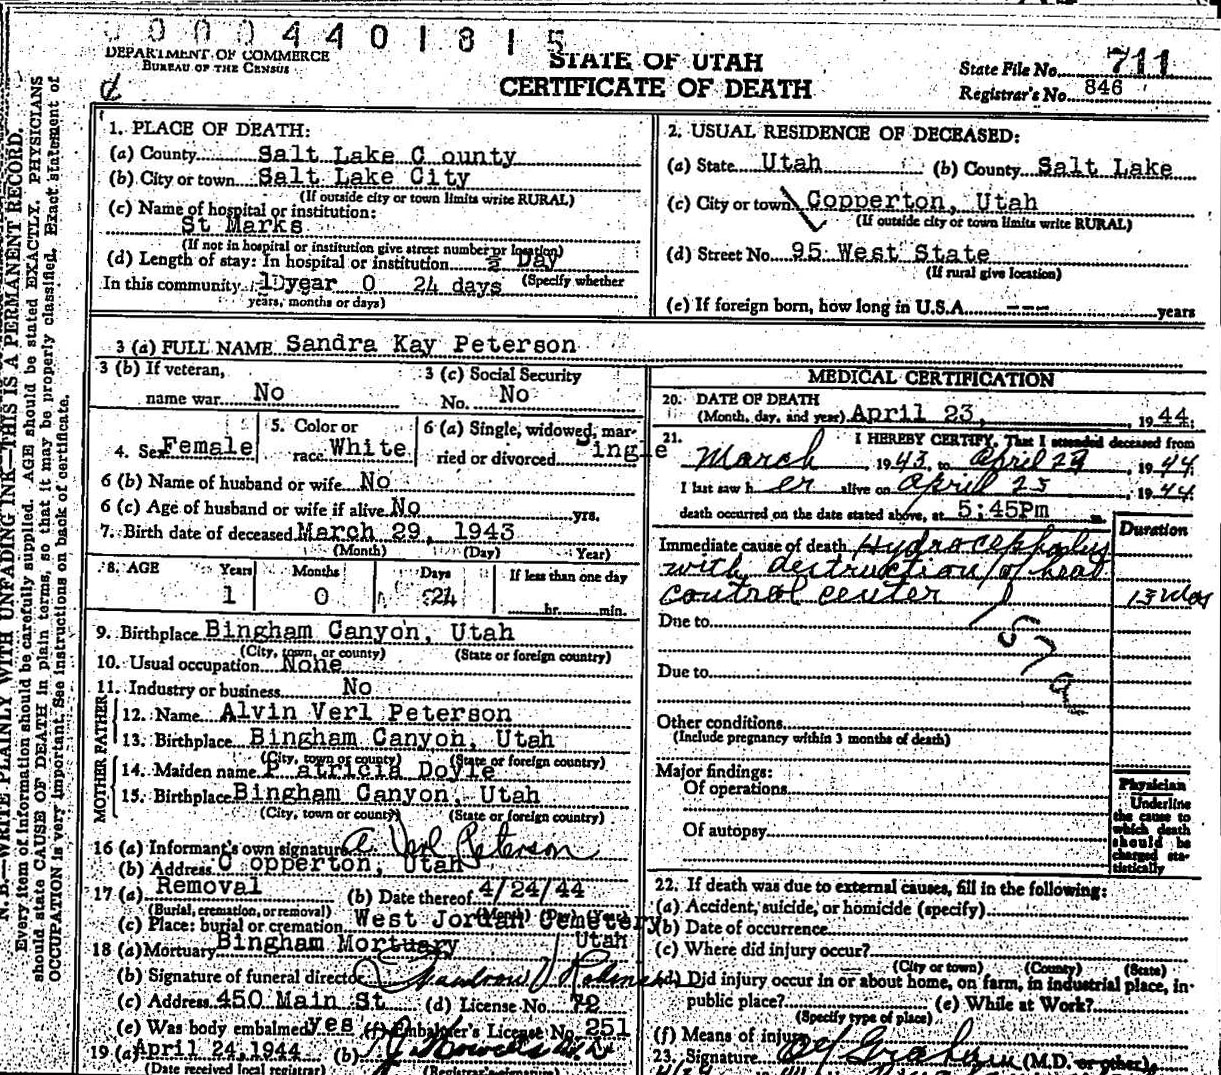 00004401815
DEPARTMENT OF COMMERCE
BUREAU OF THE CENSUS
STATE OF UTAH
CERTIFICATE OF DEATH
State File No. 711
Registrar's No. 846
N. B.—WRITE PLAINLY WITH UNFADING INK—THIS IS A PERMANENT RECORD.
Every item of information should be carefully supplied. AGE should be stated EXACTLY. PHYSICIANS
should state CAUSE OF DEATH in plain terms, so that it may be properly classified. Exact statement of
OCCUPATION is very important. See instructions on back of certificate.
1. PLACE OF DEATH:
(a) County Salt Lake C ounty
(b) City or town Salt Lake City
(If outside city or town limits write RURAL)
(c) Name of hospital or institution:
St Marks
(If not in hospital or institution give street number or location)
(d) Length of stay: In hospital or institution ½ Day
(Specify whether
In this community 1 year 0 24 days
years, months or days)
2. USUAL RESIDENCE OF DECEASED:
(a) State Utah (b) County Salt Lake
(c) City or town Copperton, Utah
(If outside city or town limits write RURAL)
(d) Street No. 95 West State
(If rural give location)
(e) If foreign born, how long in U.S.A. --- years
3 (a) FULL NAME Sandra Kay Peterson
3 (b) If veteran,
name war No
3 (c) Social Security
No. No
4. Sex Female
5. Color or
race White
6 (a) Single, widowed, mar-
ried or divorced ingle
6 (b) Name of husband or wife No
6 (c) Age of husband or wife if alive No yrs.
7. Birth date of deceased March 29, 1943
(Month) (Day) Year)
8. AGE Years Months Days If less than one day
1 0 24 hr. min.
9. Birthplace Bingham Canyon, Utah
(City, town, or county) (State or foreign country)
10. Usual occupation None
11. Industry or business No
FATHER
12. Name Alvin Verl Peterson
13. Birthplace Bingham Canyon, Utah
(City, town or county) (State or foreign country)
MOTHER
14. Maiden name P atricia Doyle
15. Birthplace Bingham Canyon, Utah
(City, town or county) (State or foreign country)
16 (a) Informant's own signature A Verl Peterson
(b) Address C opperton, Utah
17 (a) Removal (b) Date thereof 4/24/44
(Burial, cremation, or removal) (Month) (Day) (Year)
(c) Place: burial or cremation West Jordan Cemetery
Utah
18 (a) Mortuary Bingham Mortuary
(b) Signature of funeral director
(c) Address 450 Main St (d) License No. 72
(e) Was body embalmed yes (f) Embalmer's License No. 251
19 (a) April 24,1944 (b)
(Date received local registrar) (Registrar's signature)
MEDICAL CERTIFICATION
20. DATE OF DEATH
(Month, day, and year) April 23, 1944
21. I HEREBY CERTIFY, That I attended deceased from
March, 1943, to April, 1944
I last saw her alive on April, 1944
death occurred on the date stated above, at 5:45Pm m.
Duration
Immediate cause of death Hydrocephalus
with destruction of heat
control center
157a
Due to
Due to
Other conditions
(Include pregnancy within 3 months of death)
Major findings:
Of operations
Of autopsy
Physician
Underline
the cause to
which death
should be
charged sta-
tistically
22. If death was due to external causes, fill in the following:
(a) Accident, suicide, or homicide (specify)
(b) Date of occurrence
(c) Where did injury occur?
(City or town) (County) (State)
(d) Did injury occur in or about home, on farm, in industrial place, in
public place? (e) While at Work?
(Specify type of place)
(f) Means of injury
23. Signature Graham (M.D. or other)